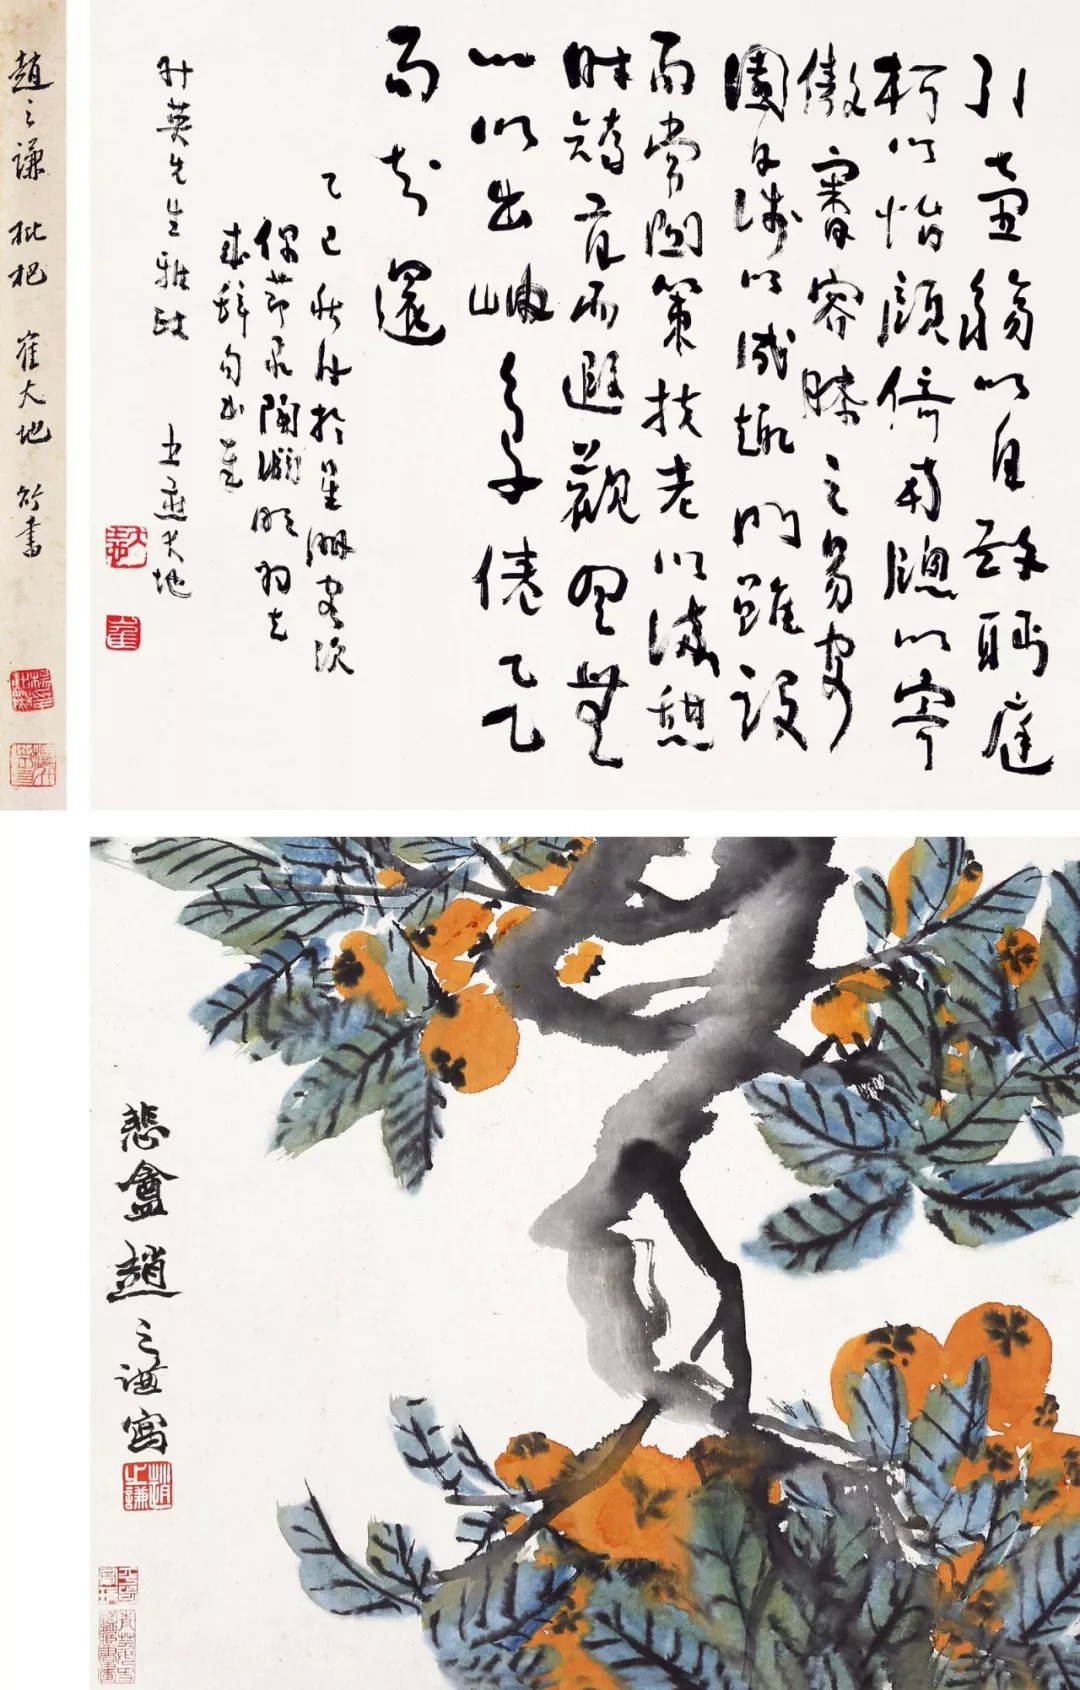 趙之謙 枇杷 崔大地 行書
引壺觴以自酌眄庭
柯以怡顏倚南牕以寄
傲審容膝之易安
園日涉以成趣門雖設
而常關策扶老以流憩
時矯首而遐觀雲無
心以出岫鳥倦飛
而知還
乙巳秋月於星洲客次
偶節录陶淵明归去
来辞句書奉
叶英先生雅政 大地
悲盦趙之謙寫
趙之謙